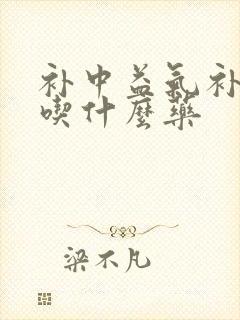 补中益氣补
喫什麼藥
梁不凡